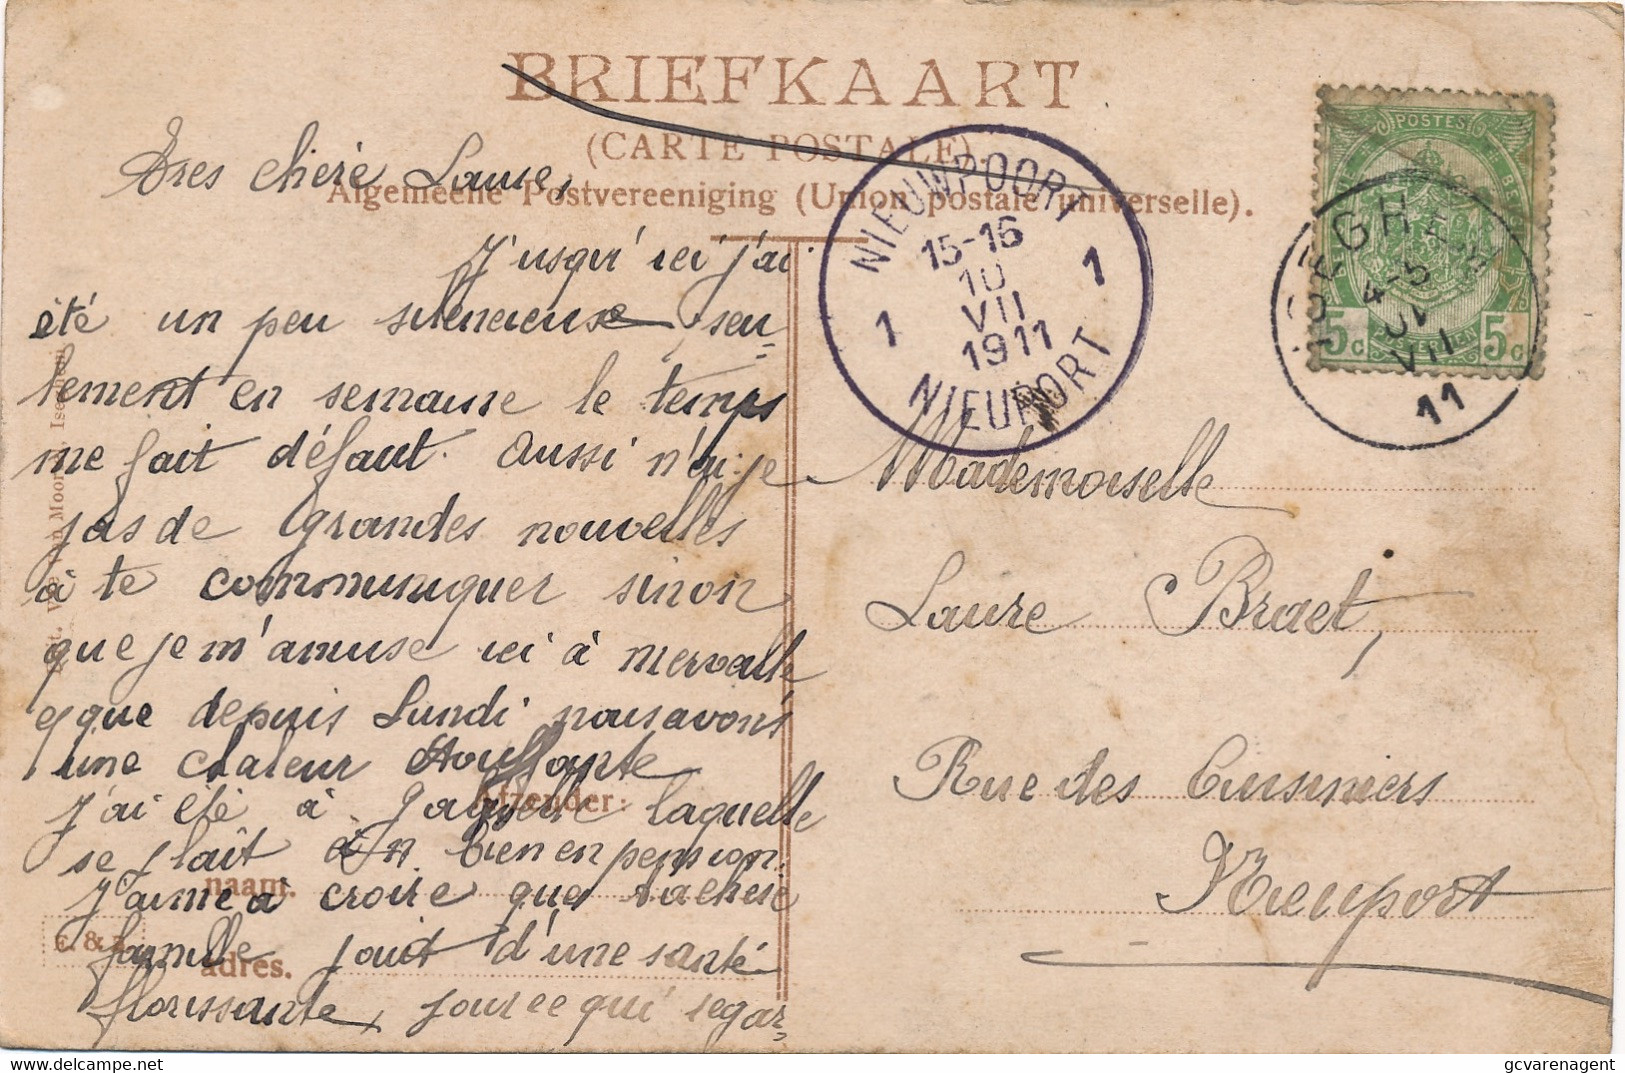 BRIEFKAART
(CARTE POSTALE).
Algemeene Postvereeniging (Union postale universelle).
Tres chère Laure,
J'usqu' ici j'ai
été un peu silencieuse, seu=
lement en semaine le temps
me fait défaut. Aussi n'ai-je
pas de grandes nouvelles
à te communiquer sinon
que je m'amuse ici à merveille
et que depuis Lundi nous avons
une chaleur étouffante
J'ai été à laquelle
se plaît bien en pension.
J'aime à croire que ta chère
famille jouit d'une santé
florissante, pour ce qui regar=
Afzender:
naam.
adres.
NIEUWPOORT
15-16
10
VII
1911
1 1
NIEUPORT
ISEGHEM
4-5
VII
11
POSTES
5c 5c
Mademoiselle
Laure Braet,
Rue des Cuisiniers
Nieuport
gcvarenagent